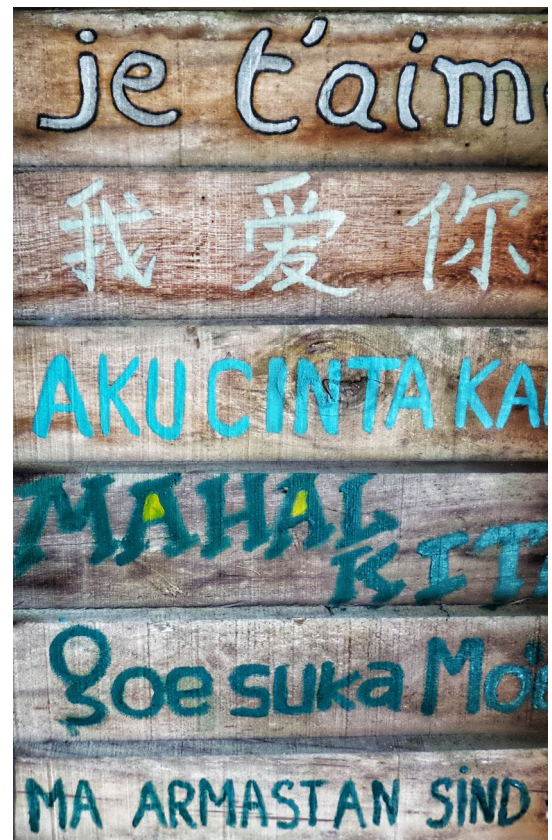 je t'aime
我 爱 你
AKU CINTA KA
MAHAL
KITA
goe suka Mo
MA ARMASTAN SiND